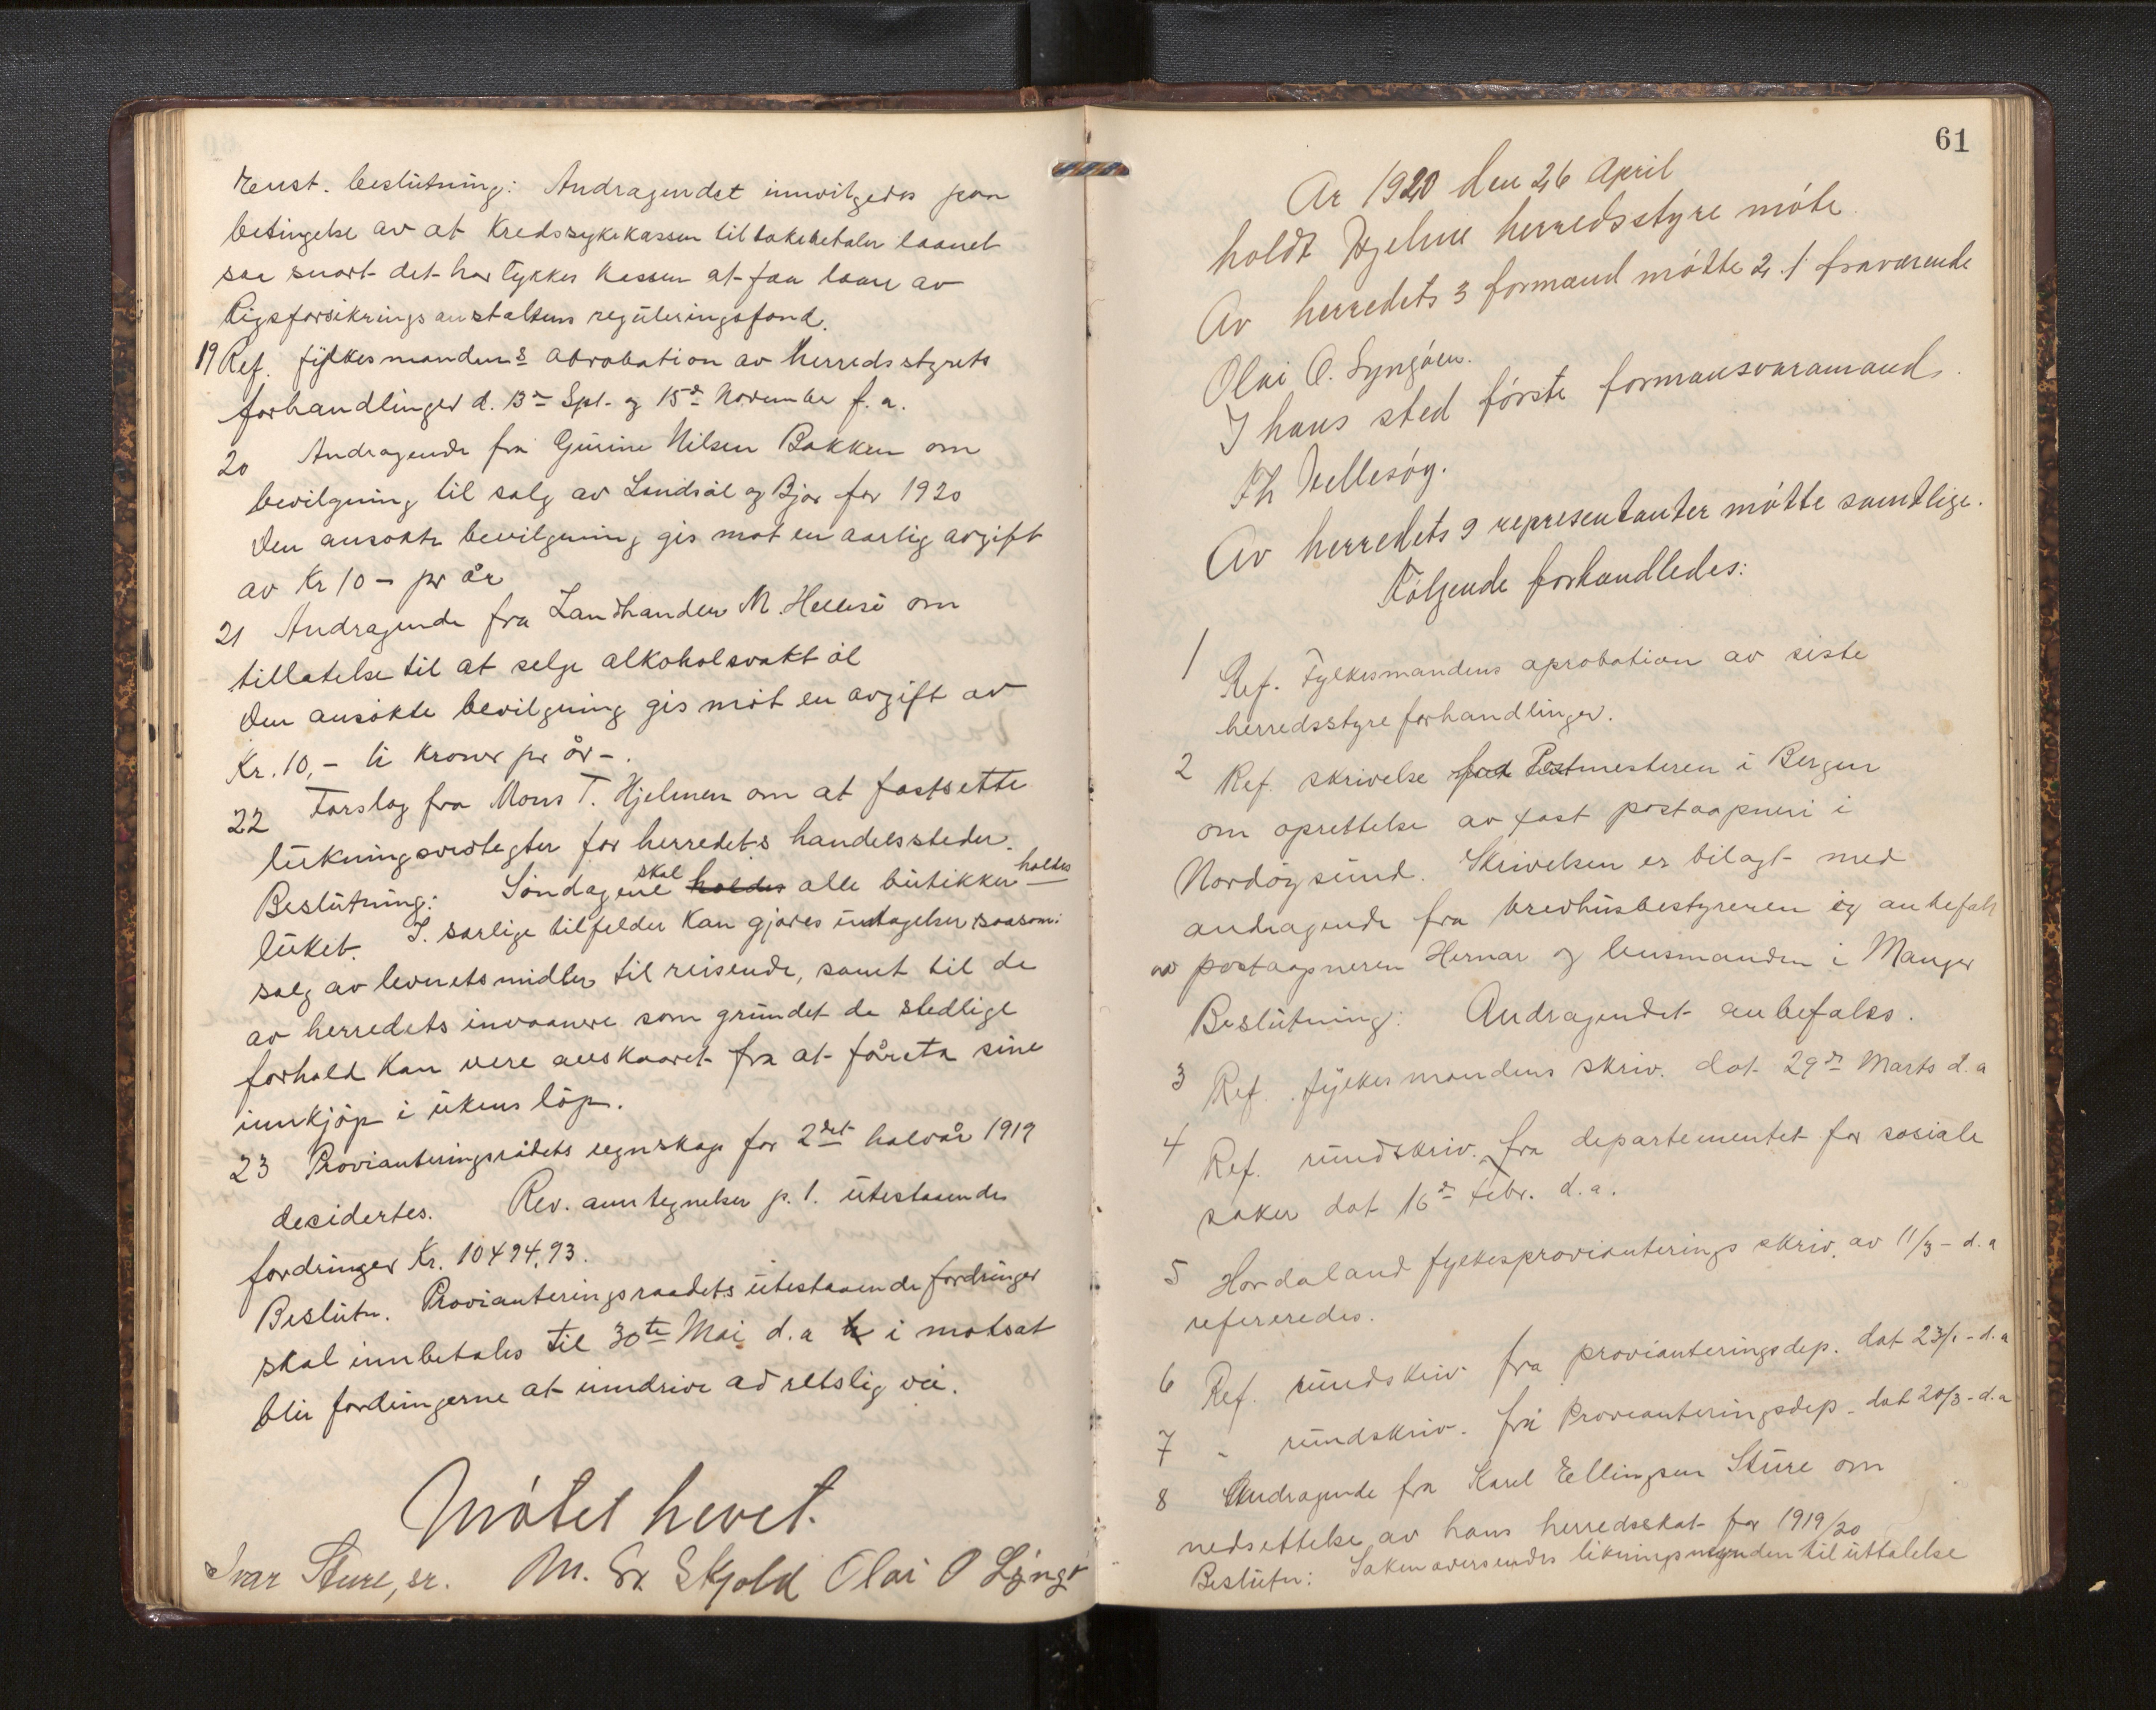 Enst. beslutning: Andragendet innvilgedes paa
betingelse av at Kredssykekassen tilbakebetaler laanet
saa snart det har lykkes kassen at faa laane av
Rigsforsikringsanstaltens reguleringsfond.
19 Ref. fylkesmandens abrobation av herredsstyrets
forhandlinger d. 13de Spt. og 15de November f. a.
20 Andragende fra Gurine Nilsen Bakken om
bevilgning til salg av Landsøl og Bjor for 1920
Den ansøkte bevilgning gis mot en aarlig avgift
av Kr 10 – pr år
21 Andragende fra Landhandler M. Hellesø om
tillatelse til at selge alkoholsvakt øl
Den ansøkte bevilgning gis mót en avgift av
Kr. 10,– ti kroner pr år –.
22 Forslag fra Mons T. Hjelmen om at fastsette
lukningsvedtegter for herredets handelssteder.
Beslutning: Søndagene skal holdes alle butikker holdes
luket. I. særlige tilfelder kan gjøres undtagelser saasom:
salg av levnetsmidler til reisende, samt til de
av herredets invaanere som grundet de stedlige
forhold kan vere avskaaret fra at fåreta sine
innkjøp i ukens løp.
23 Provianteringsrådets regnskap for 2det halvår 1919
desidertes. Rev. anntegnelser p. 1. utestaaende
fordringer Kr. 10494,93.
Beslutn. Provianteringsraadets utestaaende fordringer
skal innbetales til 30te Mai d. a i motsat
blir fordringerne at inndrive ad retslig vei.
Møtet hevet.
Ivar Sture, sr. M. Skjold Olai O Lyngø
61
Ar 1920 den 26 April
holdt Hjelme herredsstyre møte.
Av herredets 3 formænd møtte 2, 1 fraværende
Olai O. Lyngøen.
I hans sted første formansvaramand
Th Hellesøy.
Av herredets 9 representanter møtte samtlige.
Følgende forhandledes:
1 Ref. Fylkesmandens aprobation av siste
herredsstyreforhandlinger.
2 Ref. skrivelse fra Postmesteren i Bergen
om oprettelse av fast postaapneri i
Nordøysund. Skrivelsen er bilagt med
andragende fra brevhusbestyreren og anbefalt
av postaapneren Hernar og lensmanden i Manger
Beslutning: Andragendet anbefales.
3 Ref. fylkesmandens skriv. dat 29de Marts d. a
4 Ref. rundskriv. fra departementet for sosiale
saker dat 16de febr. d. a.
5 Hordaland fylkesprovianterings skriv. av 11/3 – d. a
refereredes.
6 Ref. rundskriv fra provianteringsdep. dat 23/1 – d. a
7 – rundskriv. fra Provianteringsdep. dat 20/3 – d. a
8 Andragende fra Karl Ellingsen Sture om
nedsettelse av hans herredsskat for 1919/20
Beslutn: Saken oversendes likningsnevnden til uttalelse